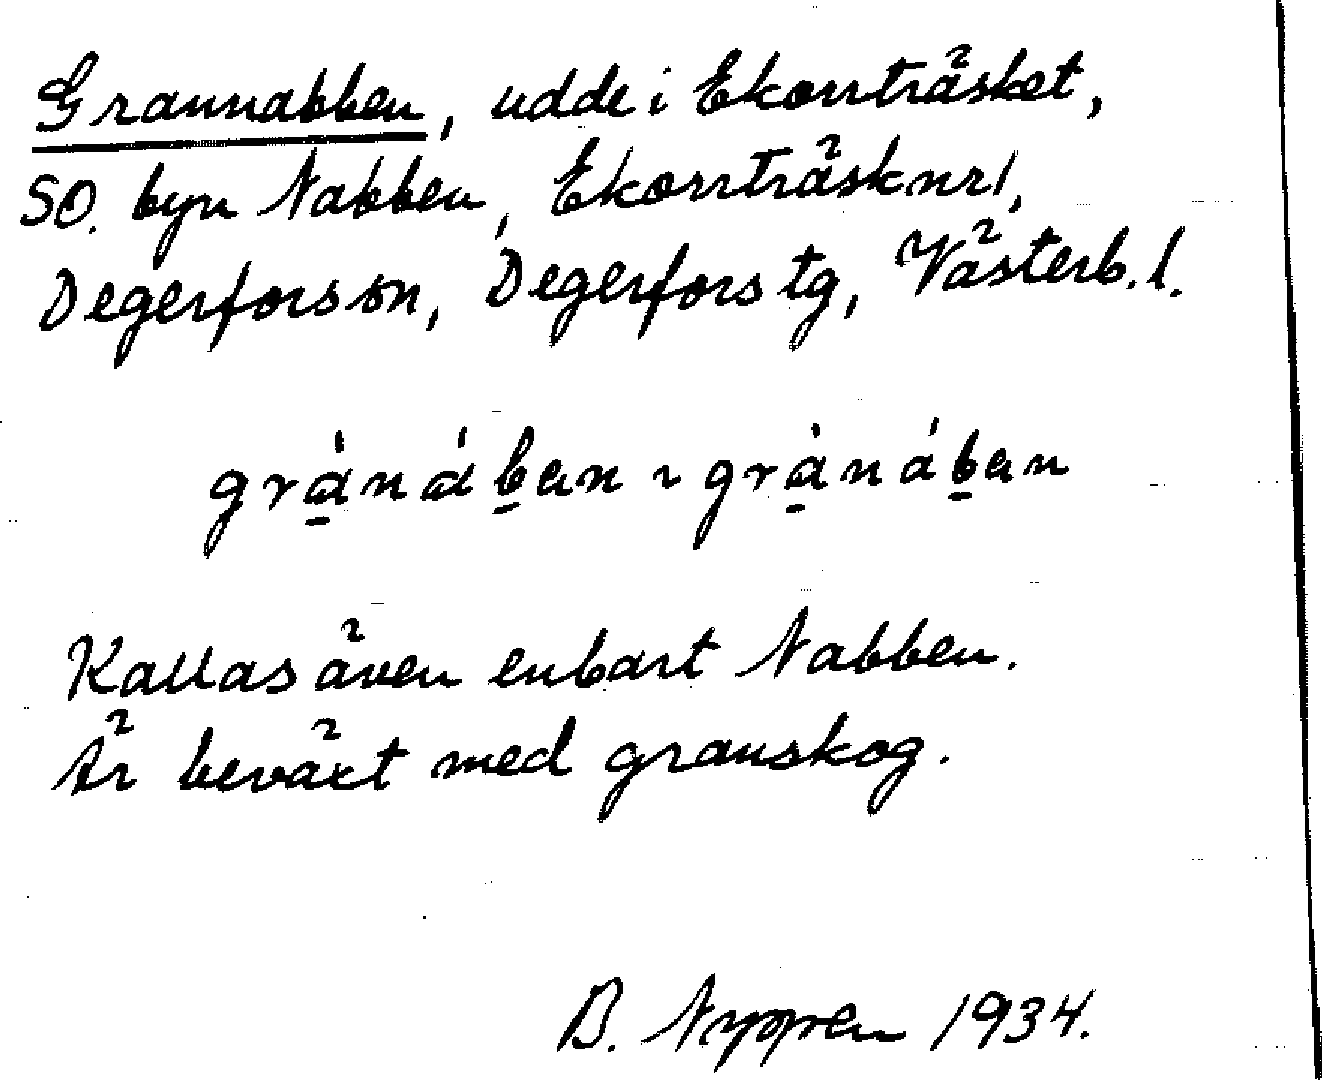 Grannabben, udde i Ekorrträsket,
SO. byn Nabben, Ekorrträsk nr 1,
Degerfors sn, Degerfors tg, Västerb. l.
grànában ~ grànában
Kallas även enbart Nabben.
Är beväxt med granskog.
B. 1934.